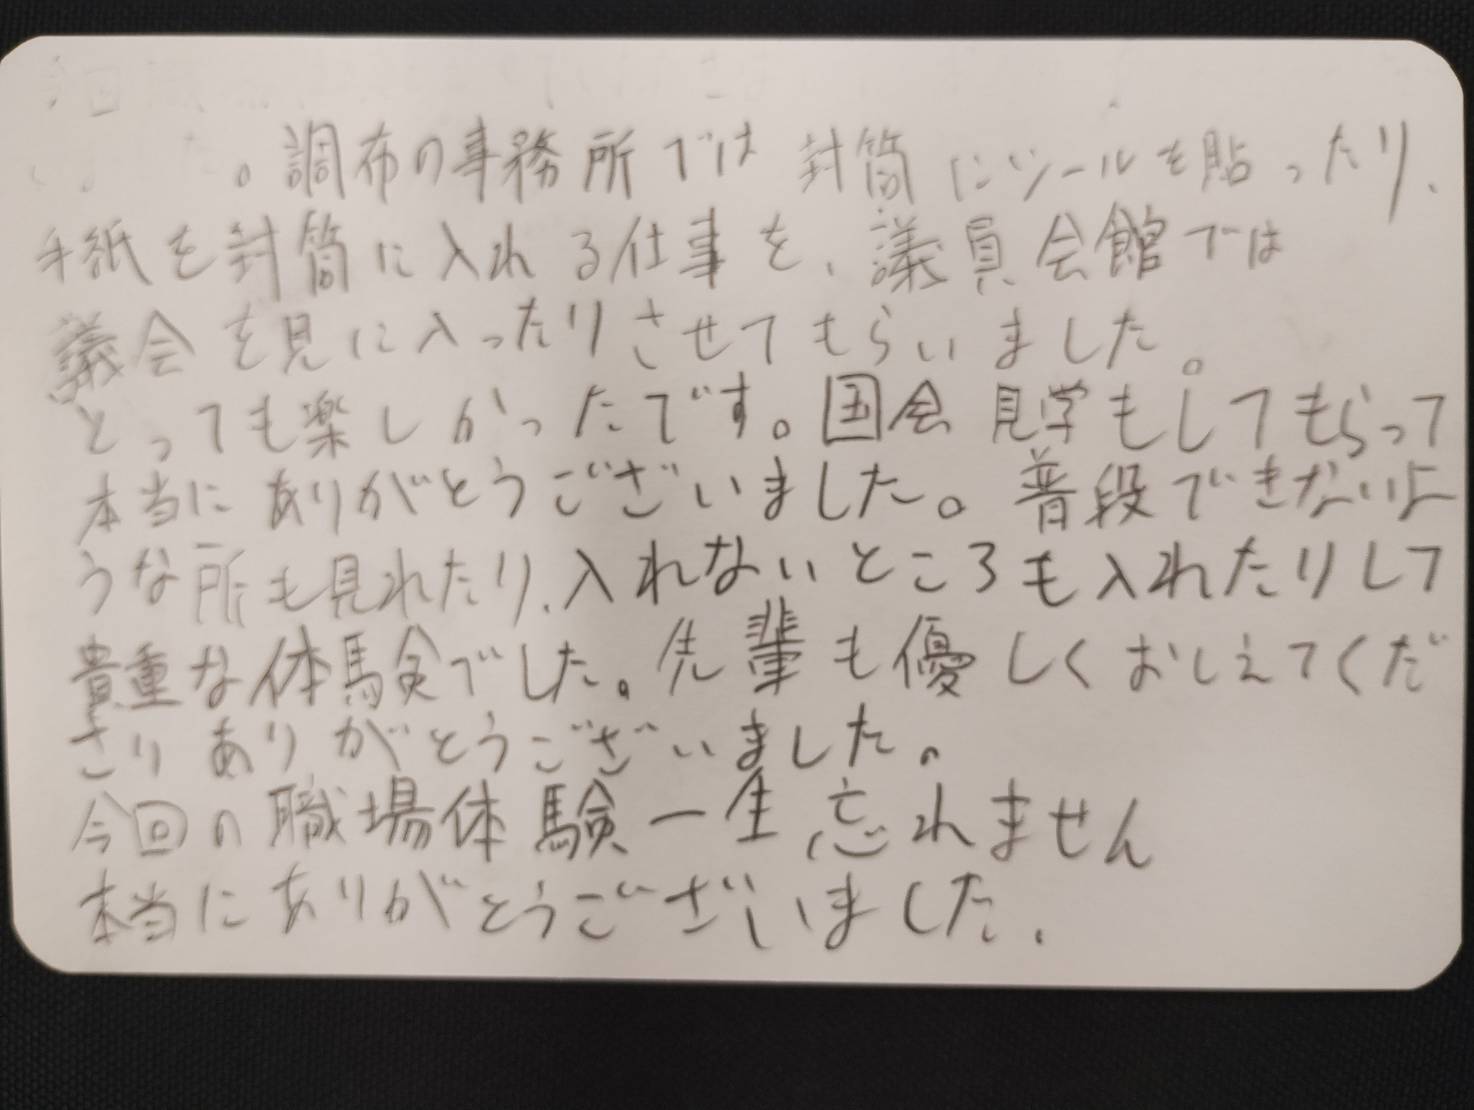 。調布の事務所では封筒にシールを貼ったり、
手紙を封筒に入れる仕事を、議員会館では
議会を見に入ったりさせてもらいました。
とっても楽しかったです。国会見学もしてもらって
本当にありがとうございました。普段できないよ
うな所も見れたり、入れないところも入れたりして
貴重な体験でした。先輩も優しくおしえてくだ
さりありがとうございました。
今回の職場体験一生忘れません
本当にありがとうございました.